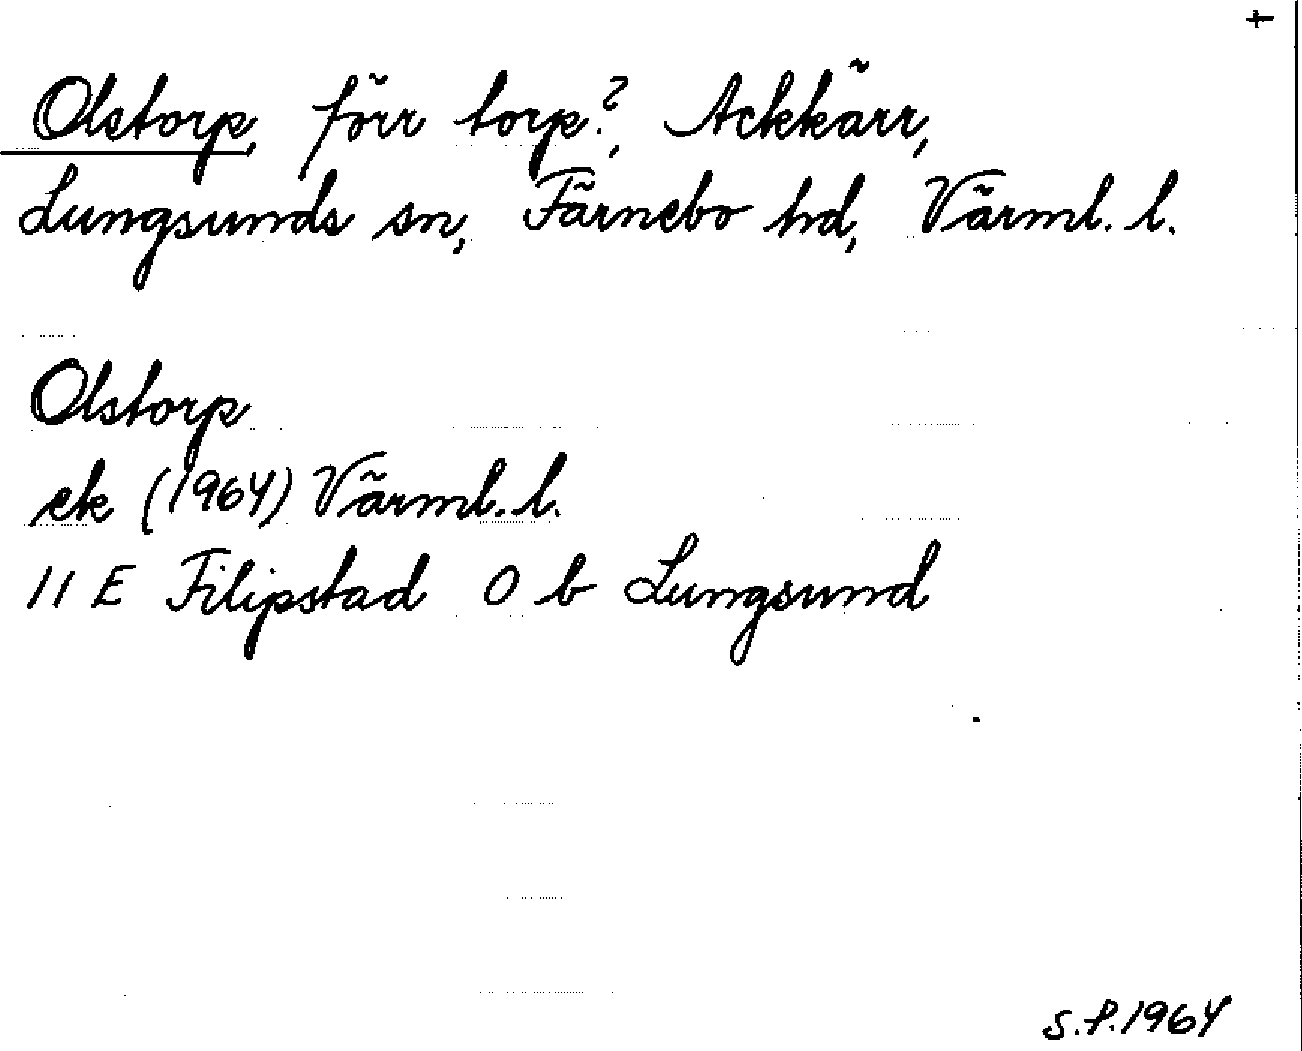 †
Olstorp, förr torp?, Ackkärr,
Lungsunds sn, Färnebo hd, Värml. l.
Olstorp
ek (1964) Värml. l.
11 E Filipstad 0 b Lungsund
S.P. 1964